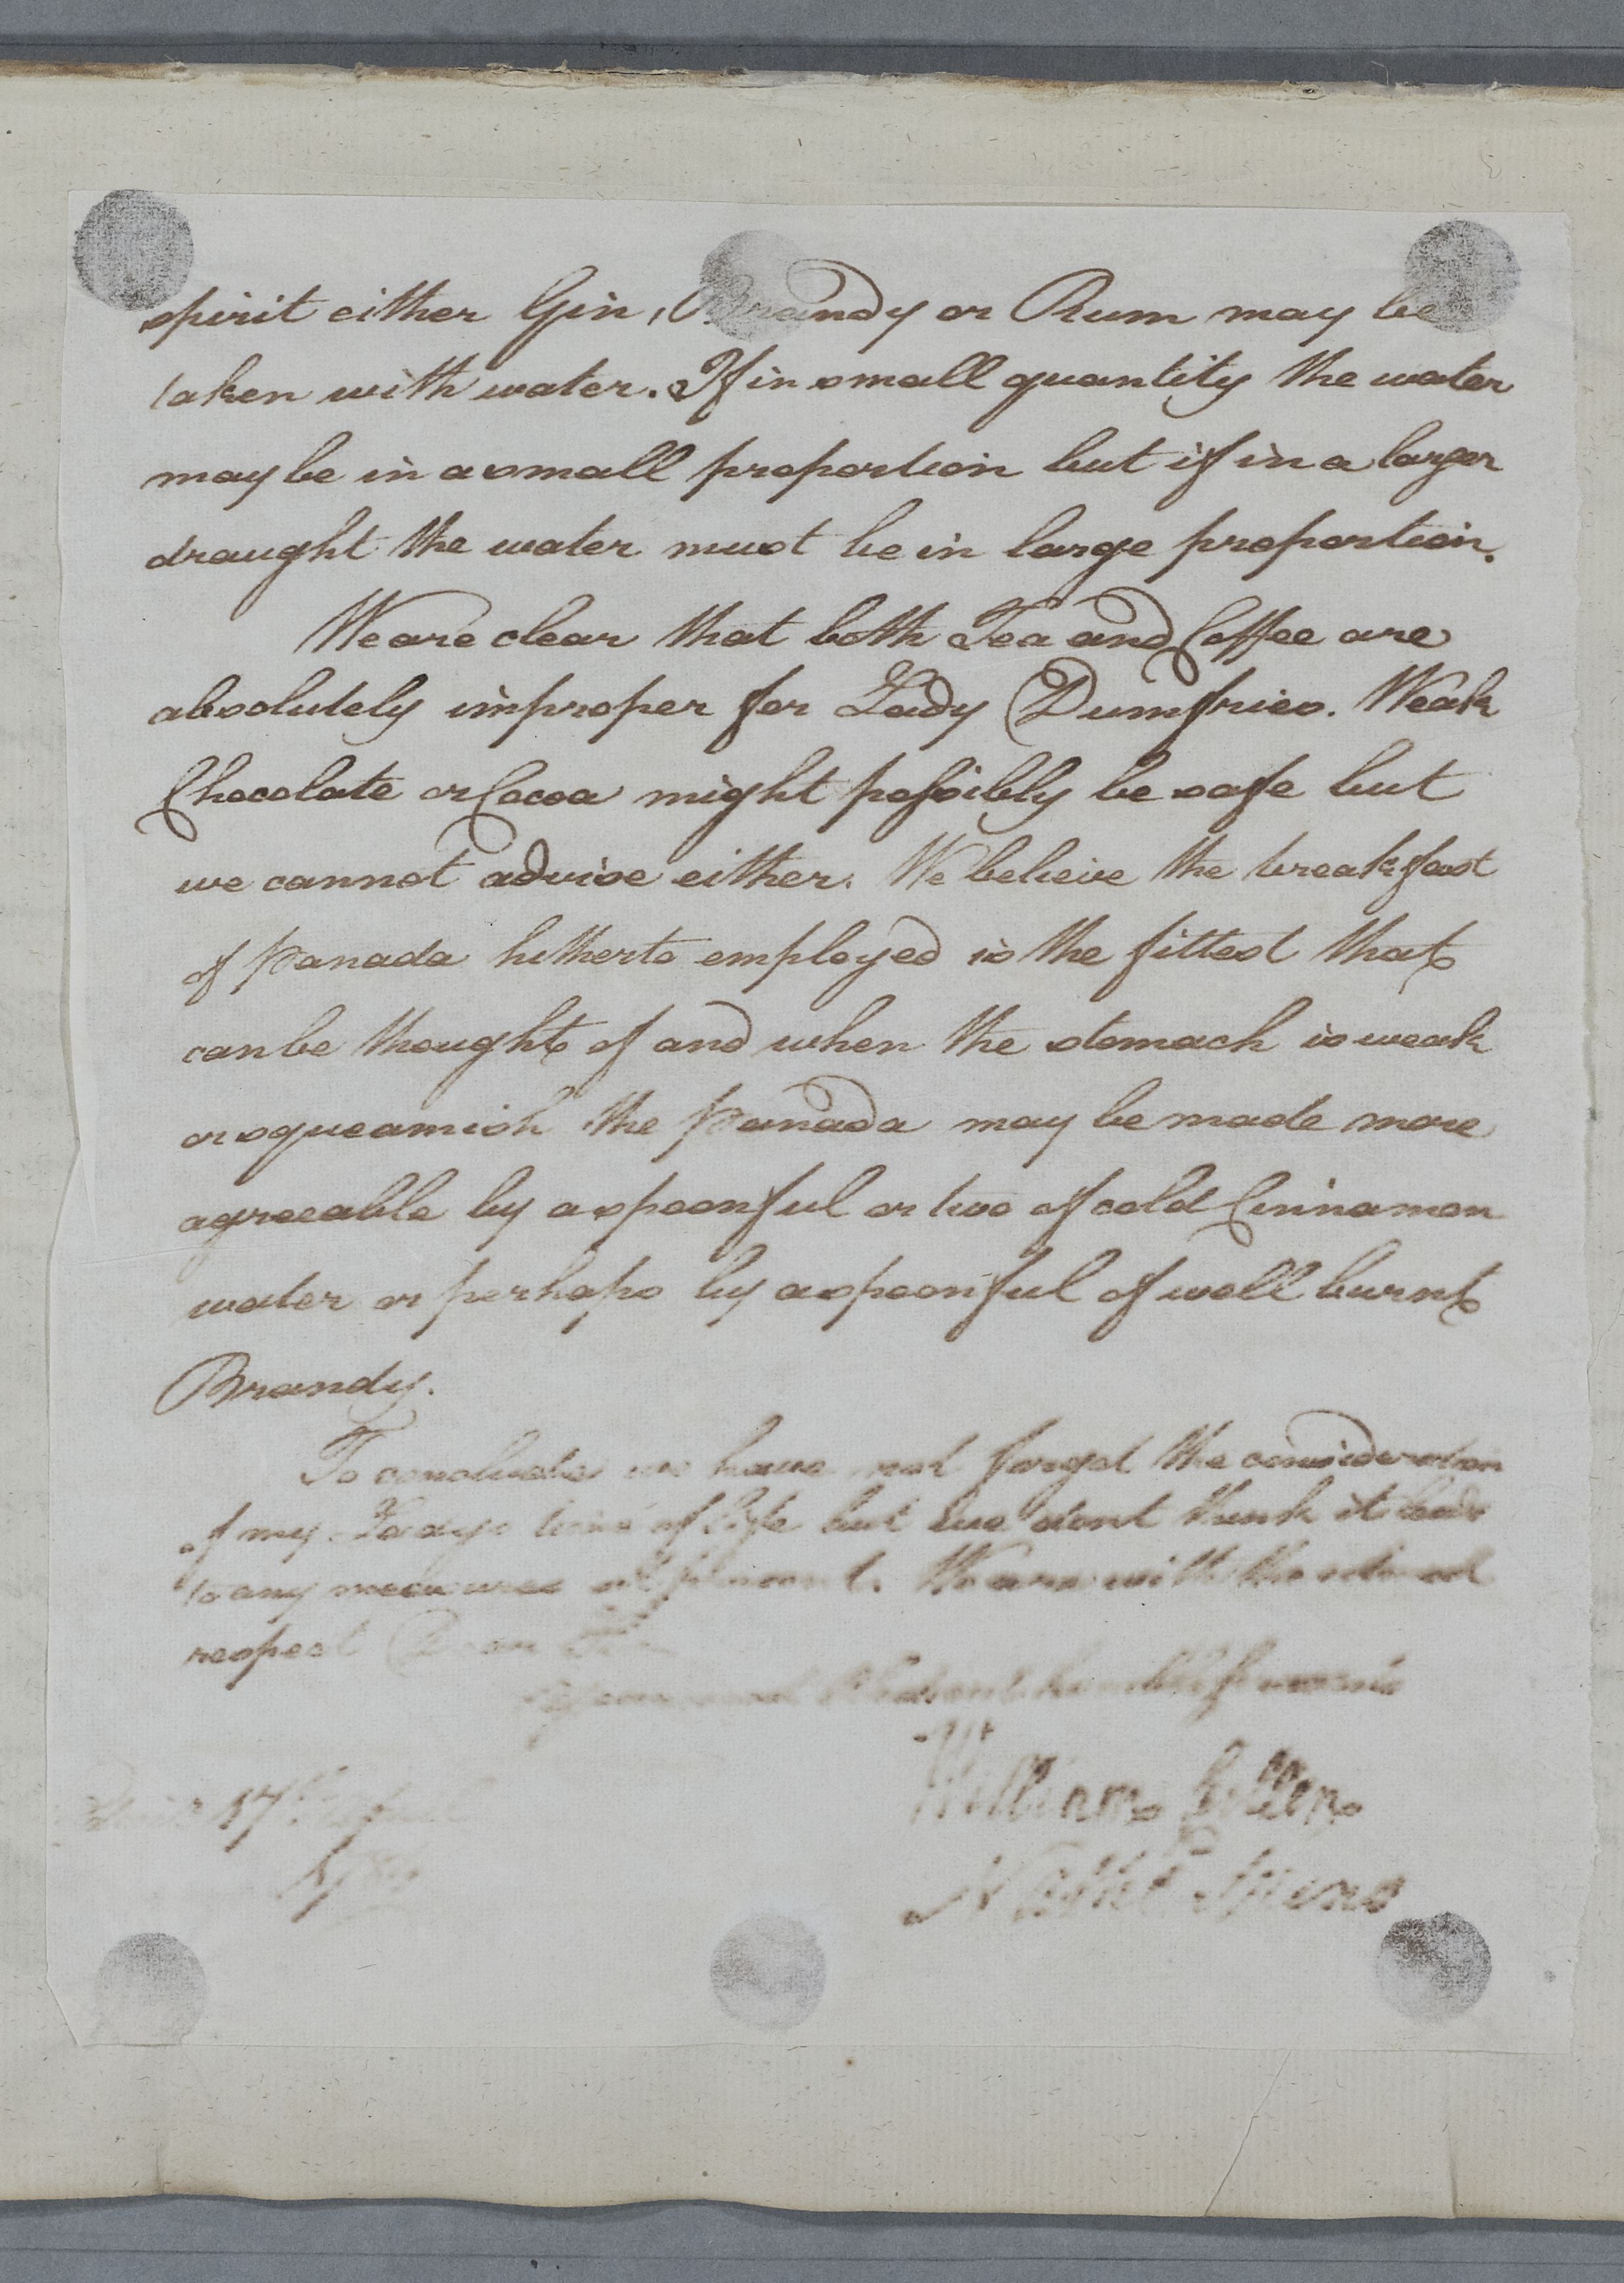 spirit either Gin, Brandy or Rum may be
taken with water. If in small quantity the water
may be in a small proportion but if in a larger
draught the water must be in large proportion.
We are clear that both Tea and Coffee are
absolutely improper for Lady Dumfries. Weak
Chocolate or Cocoa might possibly be safe but
we cannot advise either. We believe the breakfast
of Panada hitherto employed is the fittest that
can be thought of and when the stomach is weak
or squeamish the Panada may be made more
agreeable by a spoonful or two of cold Cinnamon
water or perhaps by a spoonful of well burnt
Brandy.
To conclude we have not forgot the consideration
of my Ladys time of life but we dont think it leads
to any measures at present. We are with the utmost
respect Dear Sir
Your most Obedient humble servants
William Cullen
17